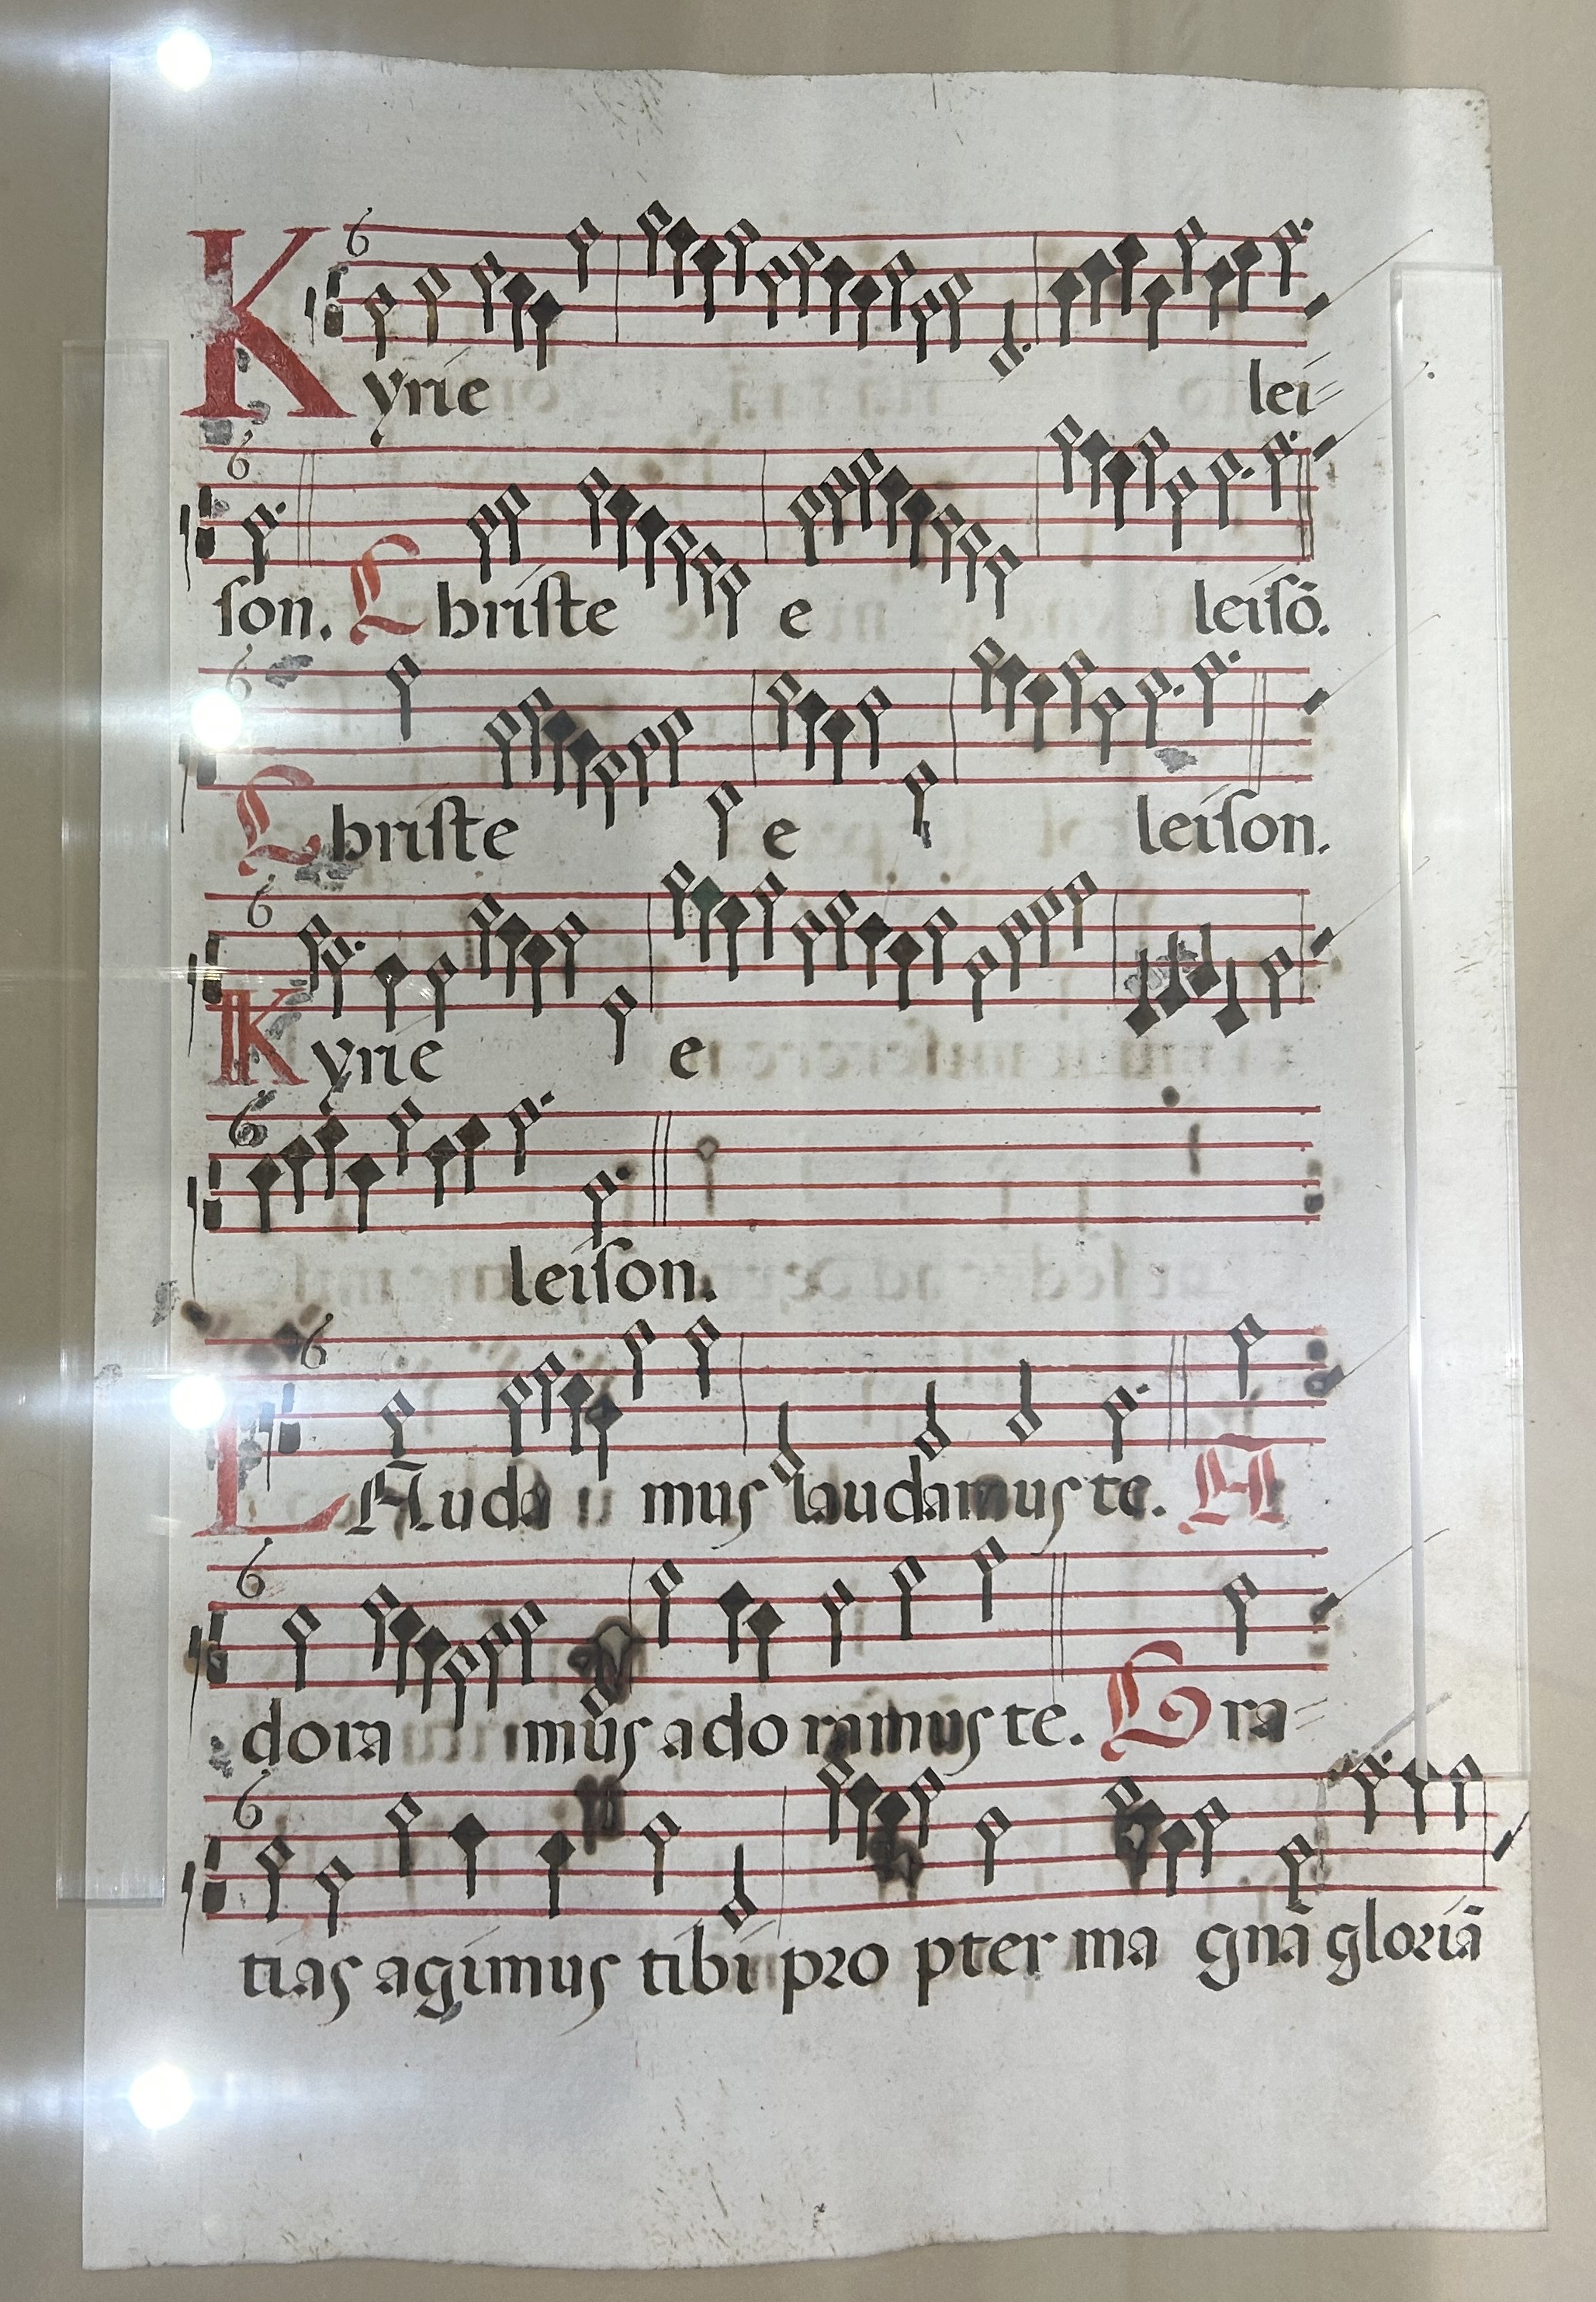 Kyrie lei=
ſon. Chriſte e leiſō.
Chriſte e leiſon.
Kyrie e
leiſon.
LAuda mus laudamus te. A
dora mus adoramus te. Gra=
tias agimus tibi pro pter ma gnā gloriā